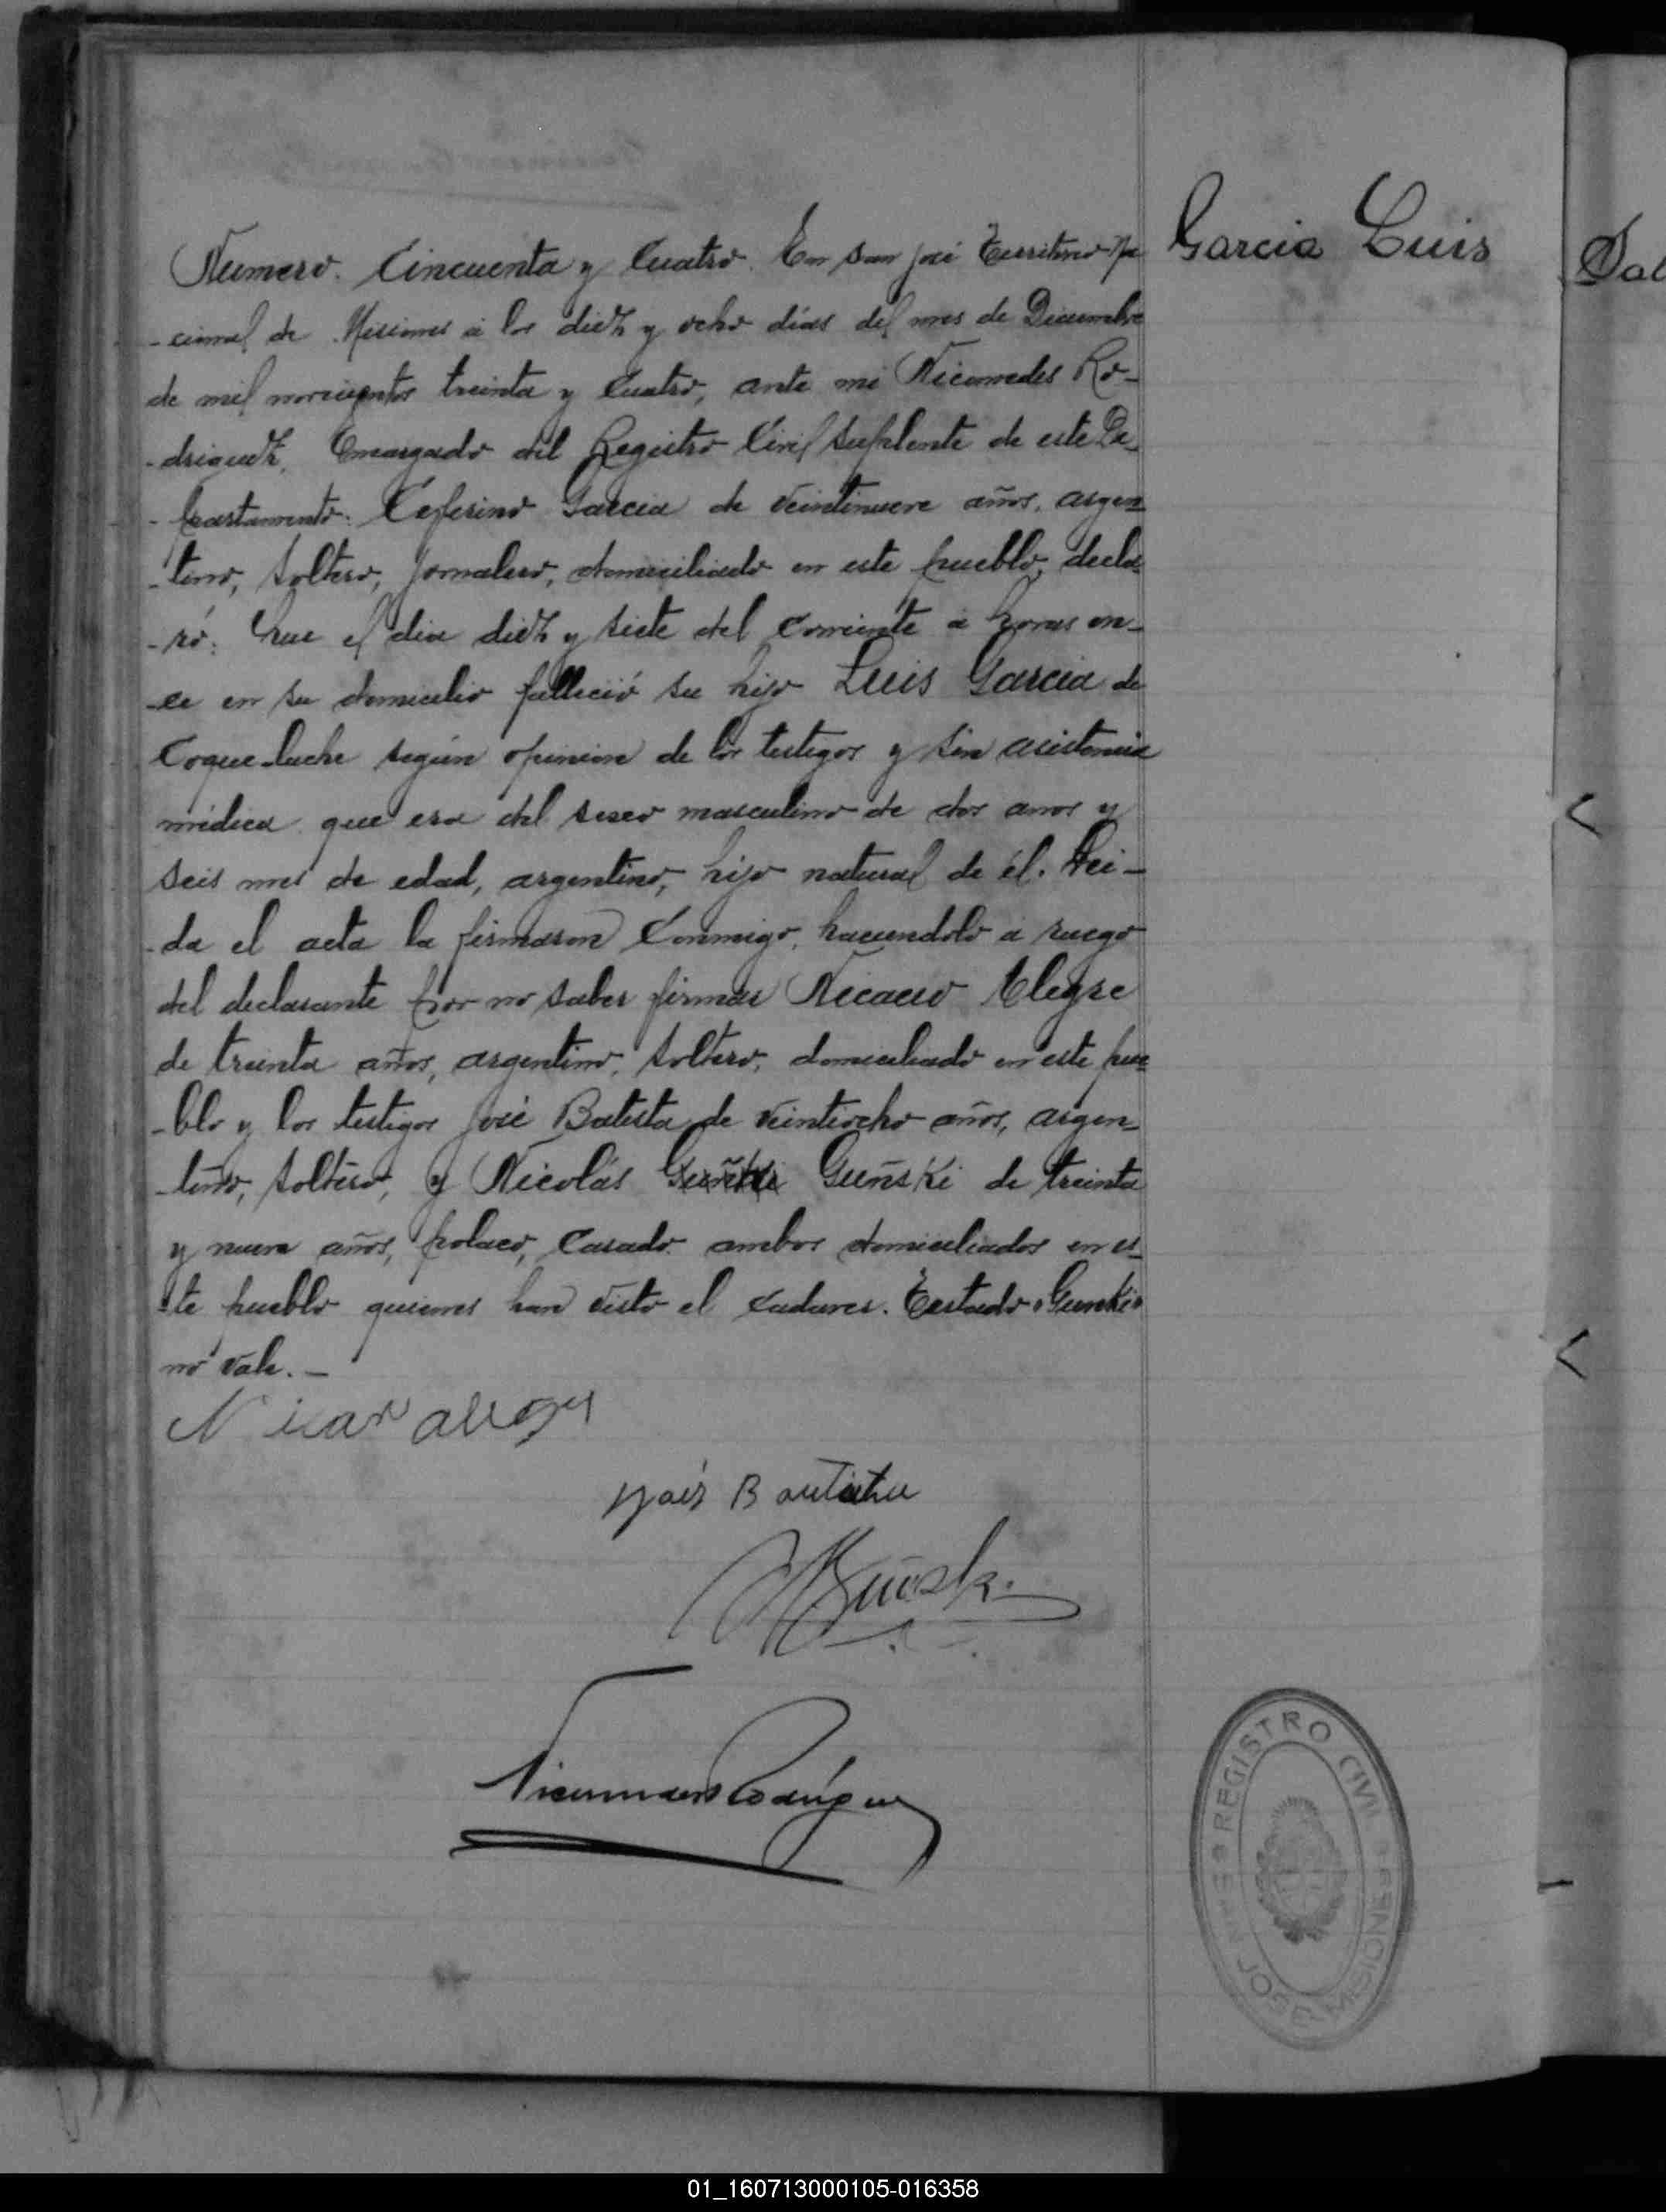 Garcia Luis
Numero. Cincuenta y Cuatro. En San José Territorio Na
-cional de Misiones á los diez y ocho días del mes de Diciembre
de mil novecientos treinta y cuatro, ante mi Nicomedes Ro-
-driguez, Encargado del Registro Civil Suplente de este De-
-partamento: Ceferino Garcia de veintinueve años, argen-
-tino, soltero, jornalero, domiciliado en este pueblo, decla-
-ró: Que el dia diez y siete del corriente á horas on-
-ce en su domicilio falleció su hijo Luis Garcia de
Coqueluche según opinion de los testigos y sin asistencia
médica que era del sexo masculino de dos años y
seis mes de edad, argentino, hijo natural de él. Lei-
-da el acta la firmaron conmigo, haciendolo á ruego
del declarante por no saber firmar Nicacio Alegre
de treinta años, argentino, soltero, domiciliado en este pue-
-blo y los testigos José Batista de veintiocho años, argen-
-tino, soltero, y Nicolás Guñski de treinta
y nueve años, polaco, casado ambos domiciliados en es-
-te pueblo quienes han visto el cadaver. Testado "Guñki"
no vale.-
Bautista
Nicomedes Rodríguez
REGISTRO CIVIL
SAN JOSE - MISIONES
Sal
01_160713000105-016358